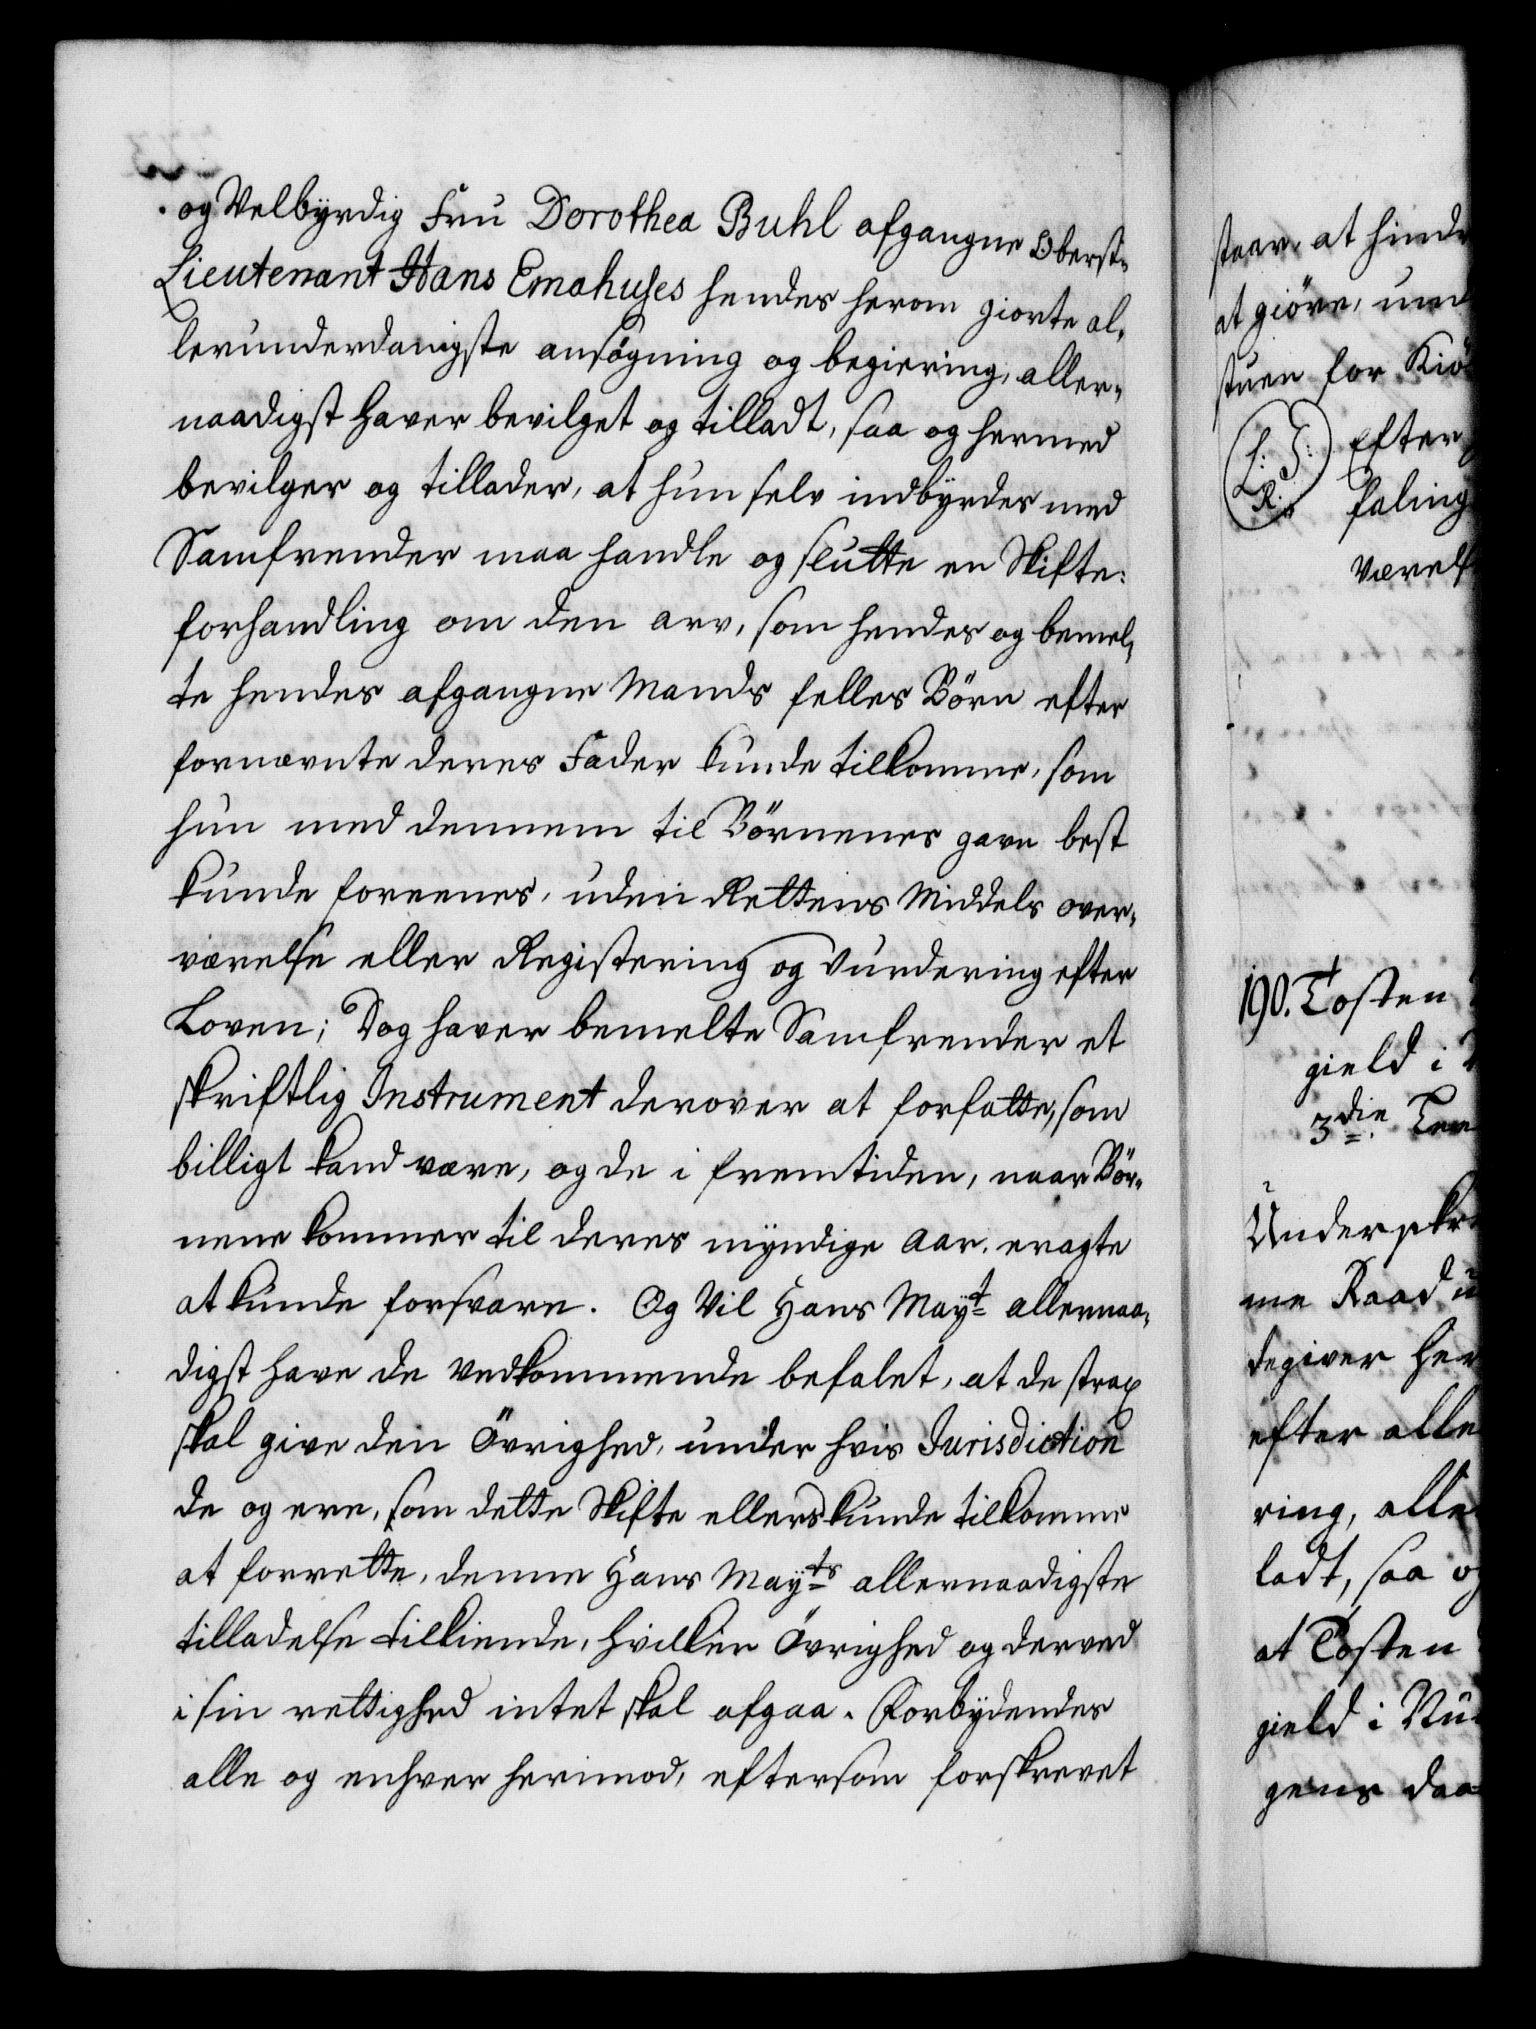 og Velbyrdig Fru Dorothea Buhl afgangne Oberst-
Lieutenant Hans Emahuses hendes herom giorte al-
lerunderdanigste ansøgning og begiering, aller-
naadigst haver bevilget og tilladt, saa og hermed
bevilger og tillader, at hun selv indbyrdes med
Samfrender maa handle og slutte en Skifte-
forhandling om den arv, som hendes og bemel-
te hendes afgangne Mands felles Børn efter
fornævnte deres Fader kunde tilkomme, som
hun med dennem til Børnenes gavn best
kunde foreenes, uden Rettens Middels over-
værelse eller Registering og Vurdering efter
Loven; Dog haver bemelte Samfrender et
skriftlig Instrument derover at forfatte, som
billigt kand være, og de i fremtiden, naar Bør-
nene kommer til deres myndige Aar, eragte
at kunde forsvare. Og Vil Hans Mayt allernaa-
digst have de vedkommende befalet, at de strax
skal give den Øvrighed, under hvis Jurisdiction
de og ere, som dette Skifte ellers kunde tilkomme
at forrette, denne Hans Mayts allernaadigste
tilladelse tilkiende, hvilken Øvrighed og derved
i sin rettighed intet skal afgaa. Forbydendes
alle og enhver herimod, eftersom forskrevet
staar, at hindr
at giøre, und
stuen for Kiø
L: S:
R.
Efter
faling
værels
190. Tosten
gield i
3die Lee
Underskr
me Raad
degiver her
efter alle
ring, alle
ladt, saa og
at Tosten
gield i Nu
gens daa-